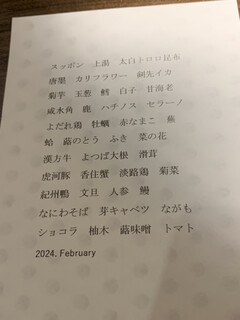 スッポン 上湯 太白トロロ昆布
唐墨 カリフラワー 剣先イカ
菊芋 玉葱 鱈 白子 甘南老
咸水角 鹿 ハチノス セラーノ
よだれ鶏 牡蠣 赤なまこ 蕪
蛤 蕗のとう ふき 菜の花
漢方牛 よつば大根 滑茸
虎河豚 香住蟹 淡路鶏 菊菜
紀州鴨 文旦 人参 鰻
なにわそば 芽キャベツ ながも
ショコラ 柚木 蕗味噌 トマト
2024. February